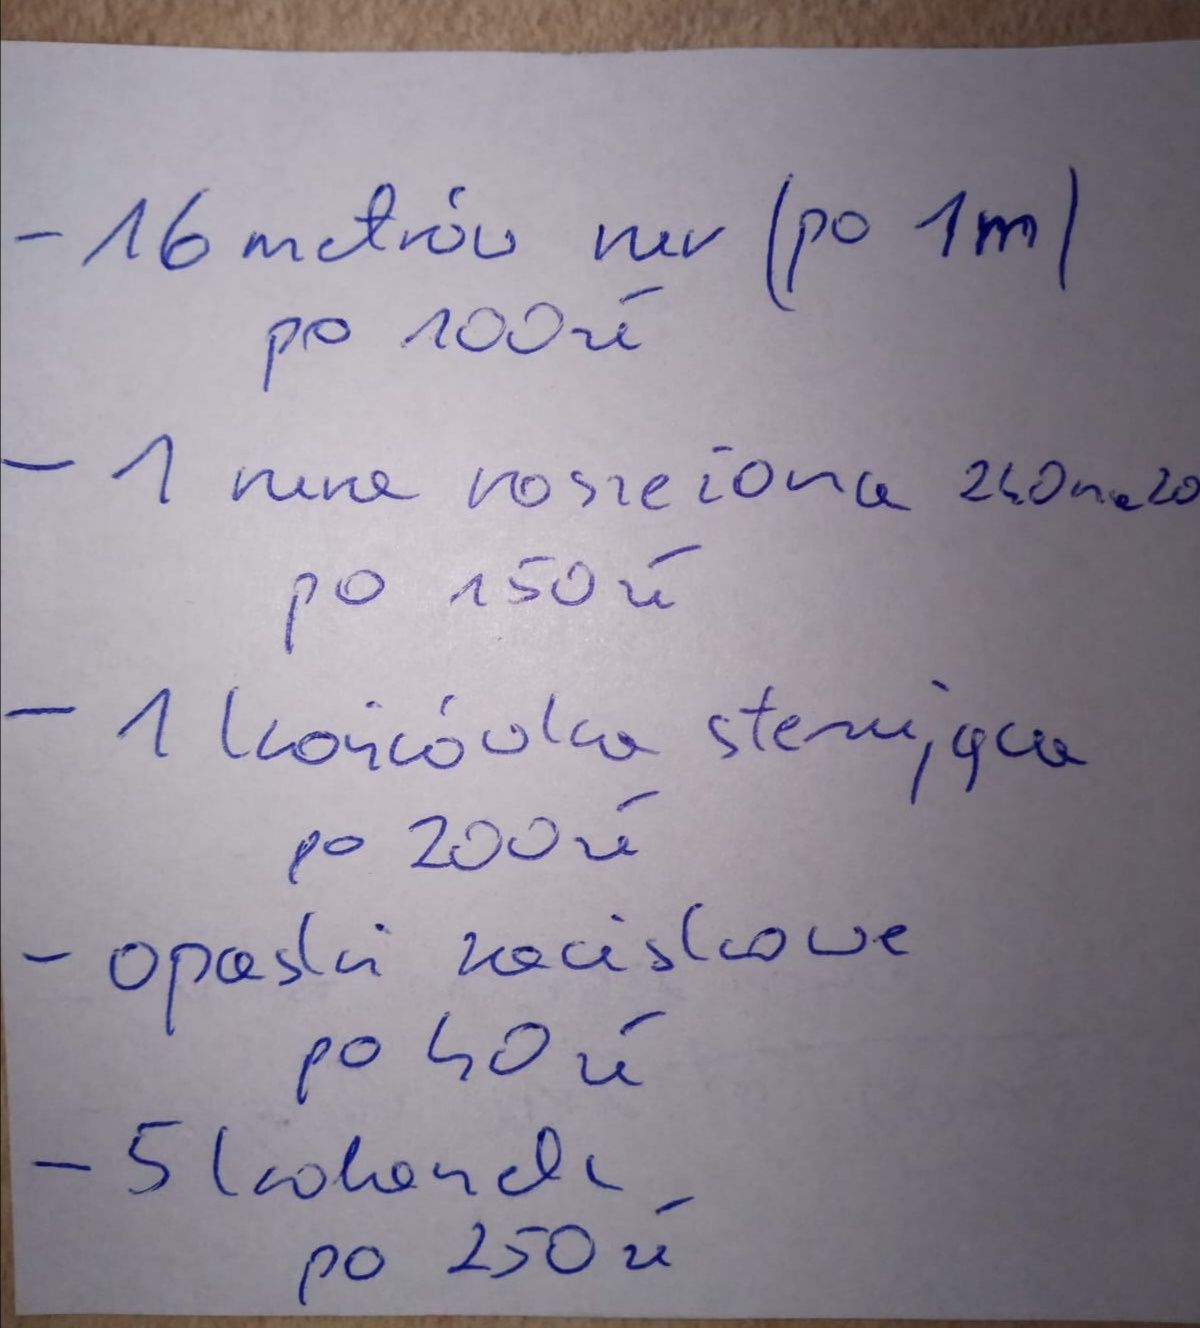 - 16 metrów rur (po 1m)
po 100zł
- 1 rura roszeiona 240na20
po 150zł
- 1 końcówka sterująca
po 200zł
- opaski zaciskowe
po 40zł
- 5 kolanek
po 250zł